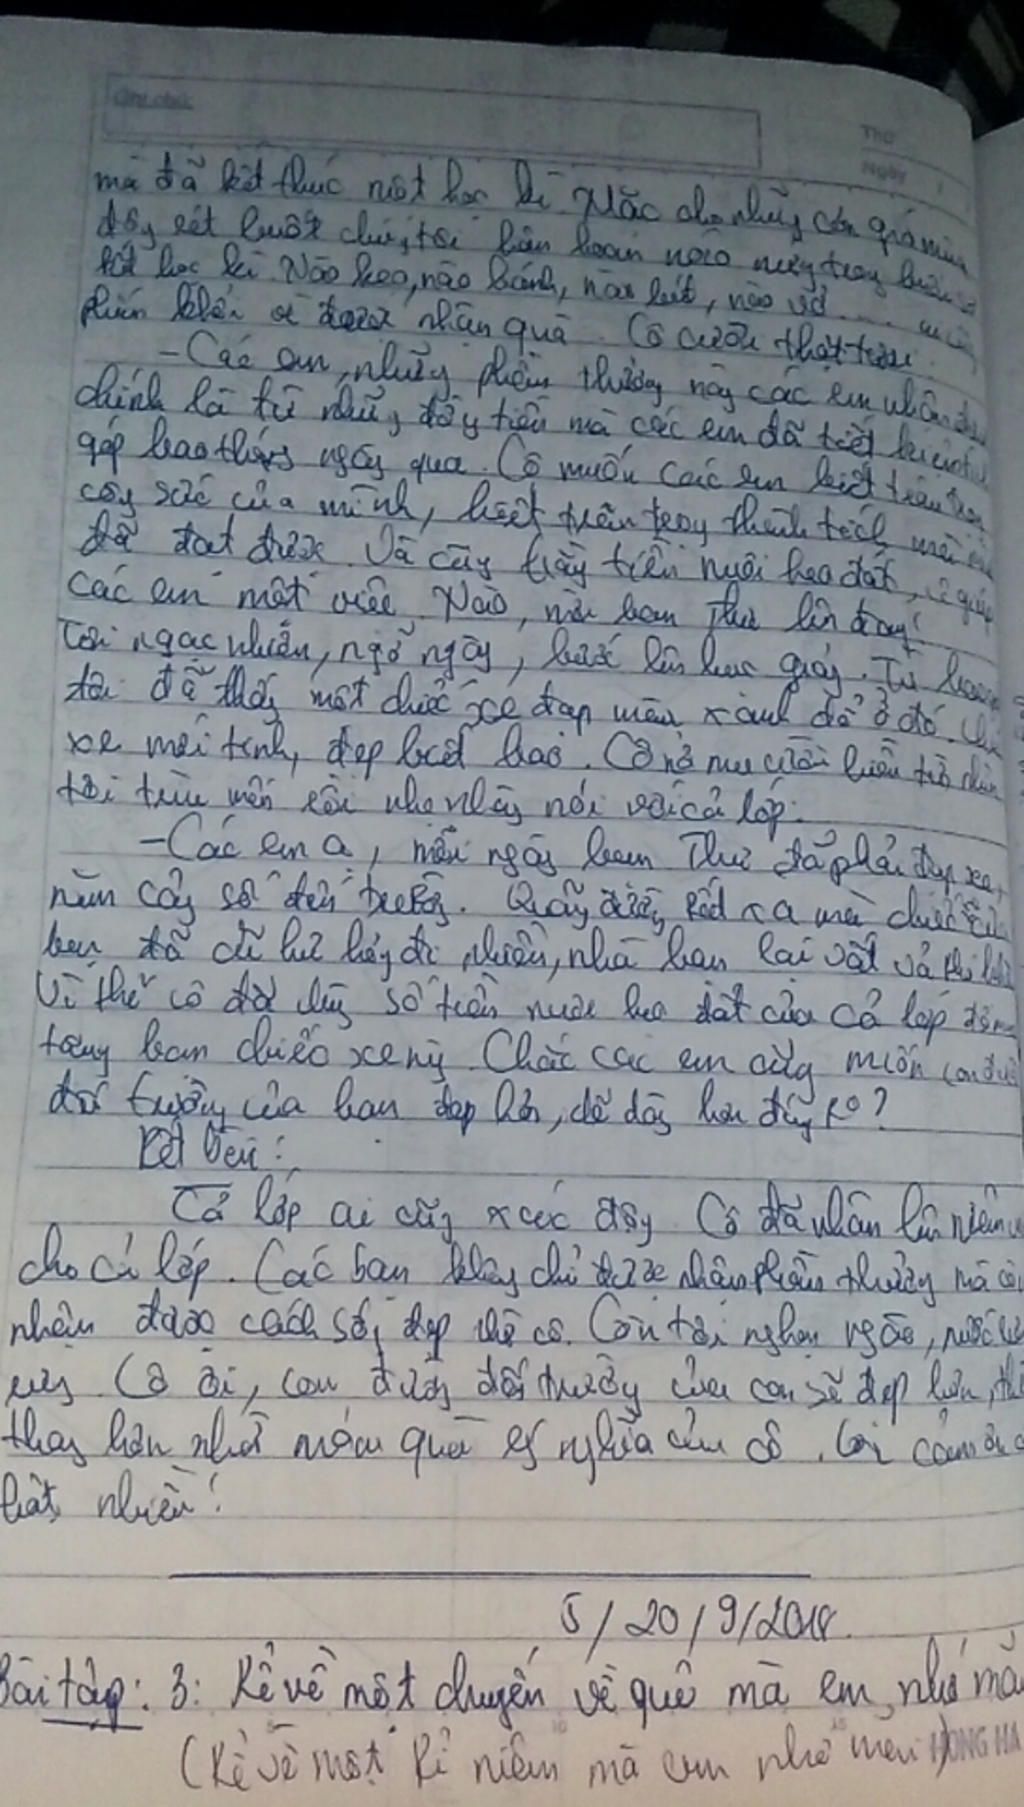 Ghi chú:
Thứ
Ngày
mà đã kết thúc một học kì. Mặc cho những cơn gió mùa
đông rét buốt chúng tôi hân hoan náo nức trong buổi
kết học kì. Nào kẹo, nào bánh, nào bút, nào vở....
phấn khởi vì được nhận quà. Cô cười thật tươi.
- Các em, những phần thưởng này các em nhận
chính là từ những đồng tiền mà các em đã tiết kiệm
góp bao tháng ngày qua. Cô muốn các em biết trân trọng
công sức của mình, biết trân trọng thành tích mà
đã đạt được. Và cũng bằng tiền nuôi heo đất, cô giúp
các em một việc. Nào, mời bạn Thư lên đây!
Tôi ngạc nhiên, ngỡ ngàng, bước lên bục giảng. Từ
tôi đã thấy một chiếc xe đạp màu xanh để ở đó.
xe mới tinh, đẹp biết bao. Cô nở nụ cười hiền từ nhìn
tôi trìu mến rồi nhẹ nhàng nói với cả lớp:
- Các em ạ, mỗi ngày bạn Thư đã phải đạp xe
năm cây số đến trường. Quãng đường rất xa mà chiếc
bạn đã cũ hư hỏng đi nhiều, nhà bạn lại vất vả
Vì thế cô đã dùng số tiền nuôi heo đất của cả lớp
tặng bạn chiếc xe này. Chắc các em cũng muốn con
đến trường của bạn đẹp hơn, dễ dàng hơn đúng ko?
Kết bài:
Cả lớp ai cũng xúc động. Cô đã nhân lên niềm
cho cả lớp. Các bạn không chỉ được nhận phần thưởng mà
nhận được cách sống đẹp từ cô. Còn tôi nghẹn ngào, nước
Cô ơi, con đường đến trường của con sẽ đẹp hơn,
hơn nhờ món quà ý nghĩa của cô. cảm ơn
rất nhiều!
5/20/9/2018.
Bài tập: 3: Kể về một chuyến về quê mà em nhớ
(Kể về một kỉ niệm mà em nhớ mãi)
HONG HA